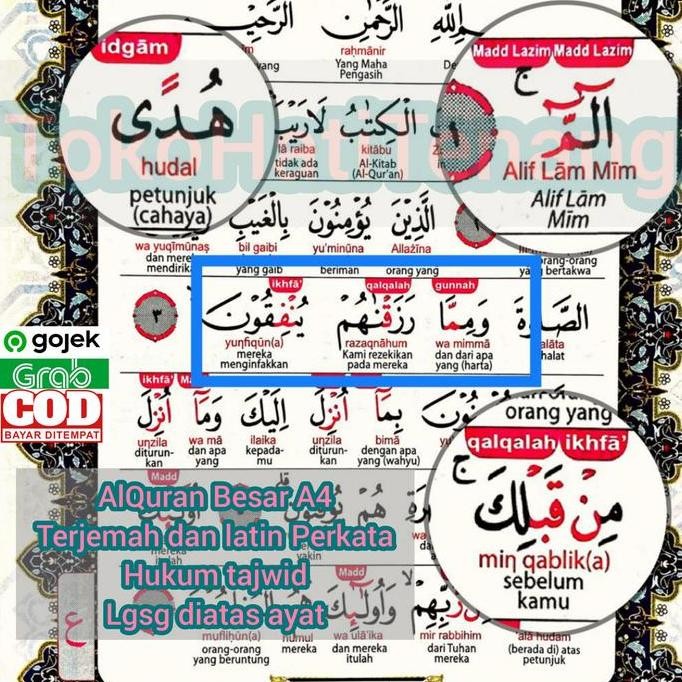 اللّٰهِ الرَّحْمٰنِ الرَّحِيْمِ
raḥmānir
Yang Maha
Pengasih
idgām
هُدًى
hudal
petunjuk
(cahaya)
Madd Lazim Madd Lazim
الۤمّۤ ۚ
Alif Lām Mīm
Alif Lām
Mīm
الْكِتٰبُ لَارَيْبَ
lā raiba kitābu
tidak ada Al-Kitab
keraguan (Al-Qur'an)
TokoHatiTenang
الَّذِيْنَ يُؤْمِنُوْنَ بِالْغَيْبِ
wa yuqīmūnaṣ bil gaibi yu'minūna Allażīna
yang gaib beriman orang yang
orang-orang
yang bertakwa
ikhfā' qalqalah gunnah
الصَّلٰوةَ وَمِمَّا رَزَقْنٰهُمْ يُنْفِقُوْنَ ٣
yunfiqūn(a) razaqnāhum wa mimmā
mereka Kami rezekikan dan dari apa
menginfakkan pada mereka yang (harta)
gojek
Grab
COD
BAYAR DITEMPAT
ikhfā'
بِمَآ اُنْزِلَ اِلَيْكَ وَمَآ اُنْزِلَ
unzila wa mā ilaika unzila bimā
diturun- dan apa kepada- diturun- dengan apa
kan yang mu kan yang (wahyu)
orang yang
qalqalah ikhfā'
مِنْ قَبْلِكَ ۚ
miŋ qablik(a)
sebelum
kamu
Madd
AlQuran Besar A4
Terjemah dan latin Perkata
Hukum tajwid
Lgsg diatas ayat
Madd
رَّبِّهِمْ وَاُولٰۤىِٕكَ هُمُ
mufliḥūn(a) humul wa ulā'ika mir rabbihim 'alā hudam
orang-orang mereka dan mereka dari Tuhan (berada di) atas
yang beruntung itulah mereka petunjuk
ع